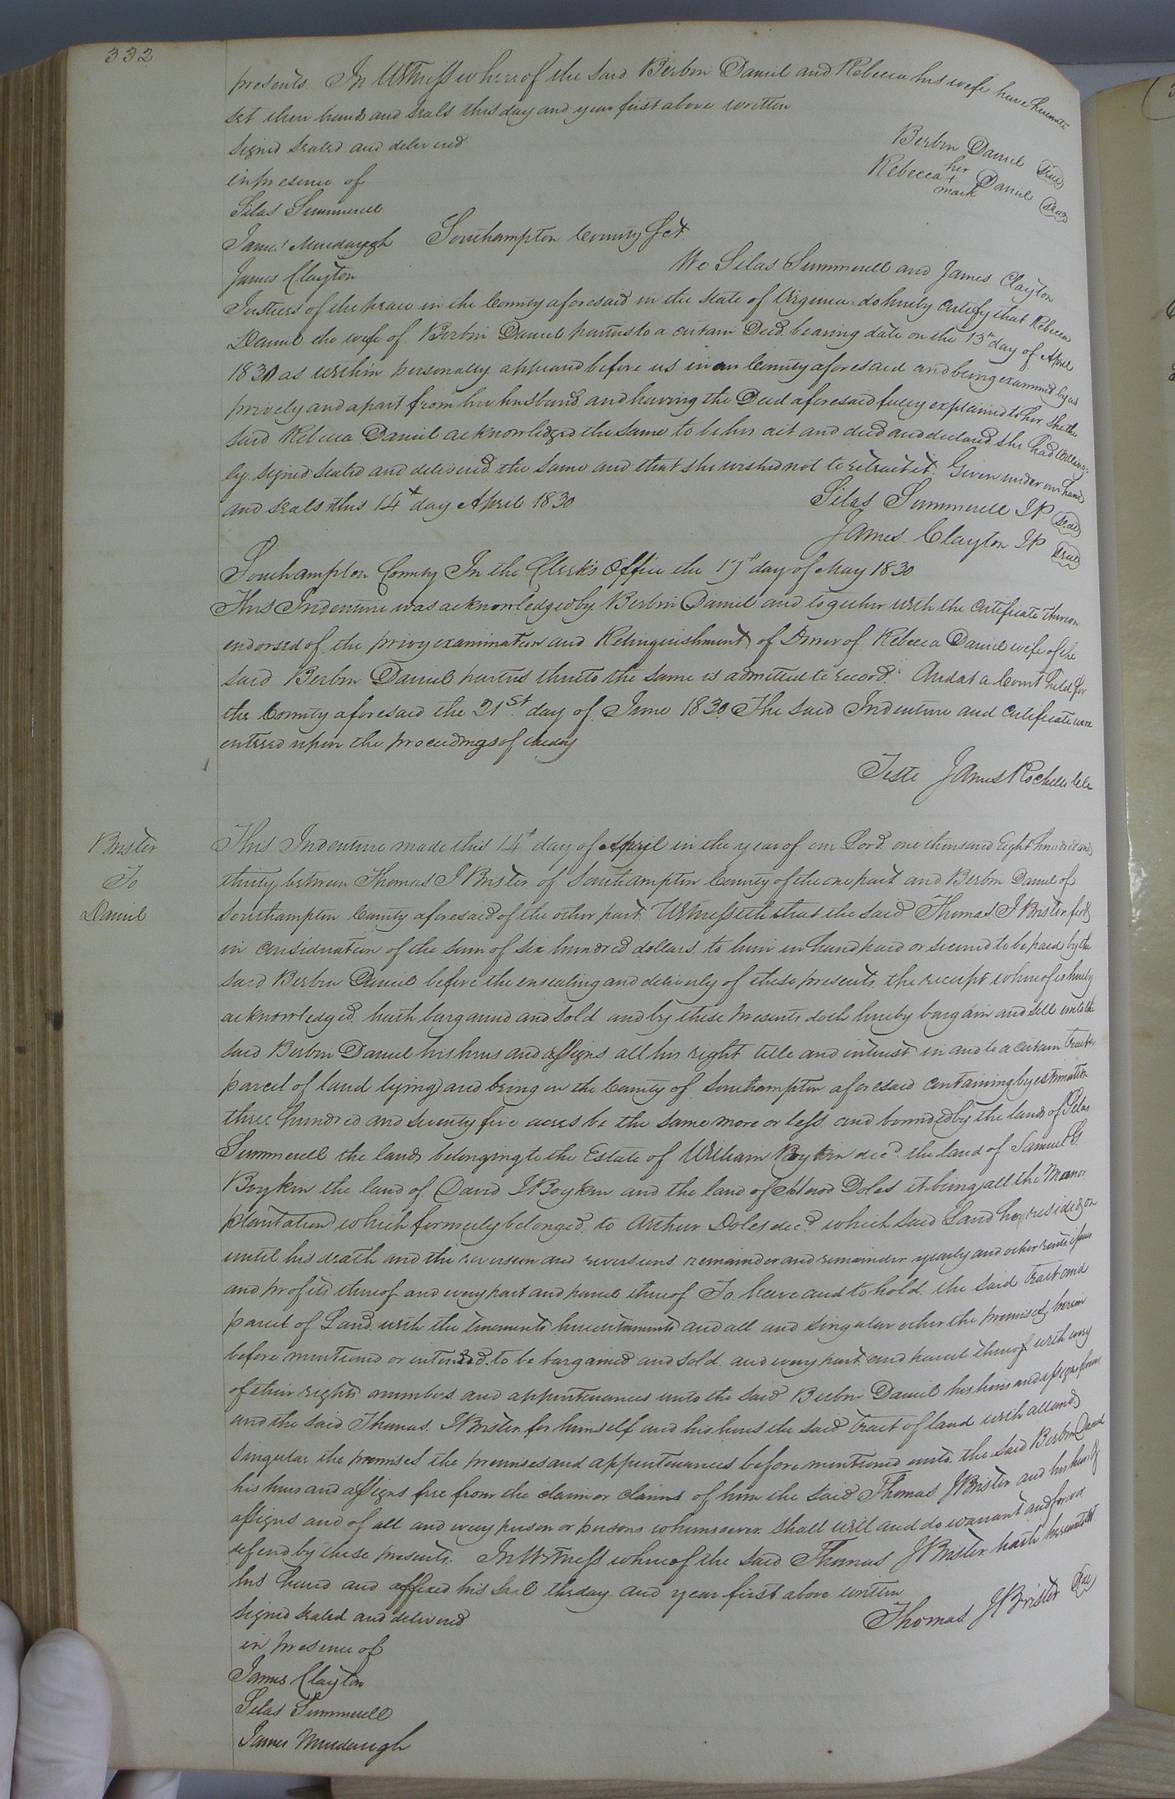 332
presents In Witness whereof the said Berbin Daniel and Rebecca his wife have hereunto
set their hands and seals this day and year first above written
Signed sealed and delivered
in presence of
Silas Summerell
James Murdaugh
James Clayton
Berbin Daniel Seal
her
Rebecca + Daniel Seal
mark
Southampton County Sct
We Silas Summerell and James Clayton
Justices of the peace in the County aforesaid in the State of Virginia do hereby certify that Rebecca
Daniel the wife of Berbin Daniel parties to a certain Deed bearing date on the 13th day of April
1830 as within personally appeared before us in our County aforesaid and being examined by us
privily and apart from her husband and having the Deed aforesaid fully explained to her she the
said Rebecca Daniel acknowledged the same to be her act and deed and declared she had willing-
ly signed sealed and delivered the same and that she wished not to retract it. Given under our hands
and seals this 14th day April 1830
Silas Summerell JP Seal
James Clayton JP Seal
Southampton County In the Clerk's Office the 17th day of May 1830
This Indenture was acknowledged by Berbin Daniel and together with the Certificate thereon
endorsed of the privy examination and Relinquishment of Dower of Rebecca Daniel wife of the
said Berbin Daniel parties thereto the same is admitted to record. And at a Court held for
the County aforesaid the 21st day of June 1830 The said Indenture and Certificate were
entered upon the proceedings of the day
Teste James Rochelle Clk
Brister
To
Daniel
This Indenture made this 14th day of April in the year of our Lord one thousand Eight hundred and
thirty between Thomas J Brister of Southampton County of the one part and Berbin Daniel of
Southampton County aforesaid of the other part. Witnesseth that the said Thomas J Brister for &
in consideration of the sum of six hundred dollars to him in hand paid or secured to be paid by the
said Berbin Daniel before the ensealing and delivery of these presents the receipt whereof is hereby
acknowledged hath bargained and sold and by these presents doth hereby bargain and sell unto the
said Berbin Daniel his heirs and assigns all his right title and interest in and to a certain tract or
parcel of land lying and being in the County of Southampton aforesaid containing by estimation
three hundred and seventy five acres be the same more or less and bounded by the lands of Silas
Summerell the lands belonging to the Estate of William Boykin decd. the land of Samuel G
Boykin the land of David J Boykin and the land of Doles it being all the Manor
plantation which formerly belonged to Arthur Doles decd which said Land he resided on
until his death and the reversion and reversions remainder and remainder yearly and other rents issues
and profits thereof and every part and parcel thereof To have and to hold the said tract and
parcel of Land with the tenements hereditaments and all and singular other the premises herein
before mentioned or intended to be bargained and sold and every part and parcel thereof with every
of their rights members and appurtenances unto the said Berbin Daniel his heirs and assigns forever
and the said Thomas J Brister for himself and his heirs the said tract of land with all and
singular the premises the premises and appurtenances before mentioned unto the said Berbin Daniel
his heirs and assigns free from the claim or claims of him the said Thomas J Brister and his heirs of
assigns and of all and every person or persons whomsoever shall will and do warrant and forever
defend by these presents. In Witness whereof the said Thomas J Brister hath hereunto set
his hand and affixed his seal the day and year first above written
Signed sealed and delivered
in presence of
James Clayton
Silas Summerell
James Murdaugh
Thomas J Brister Seal